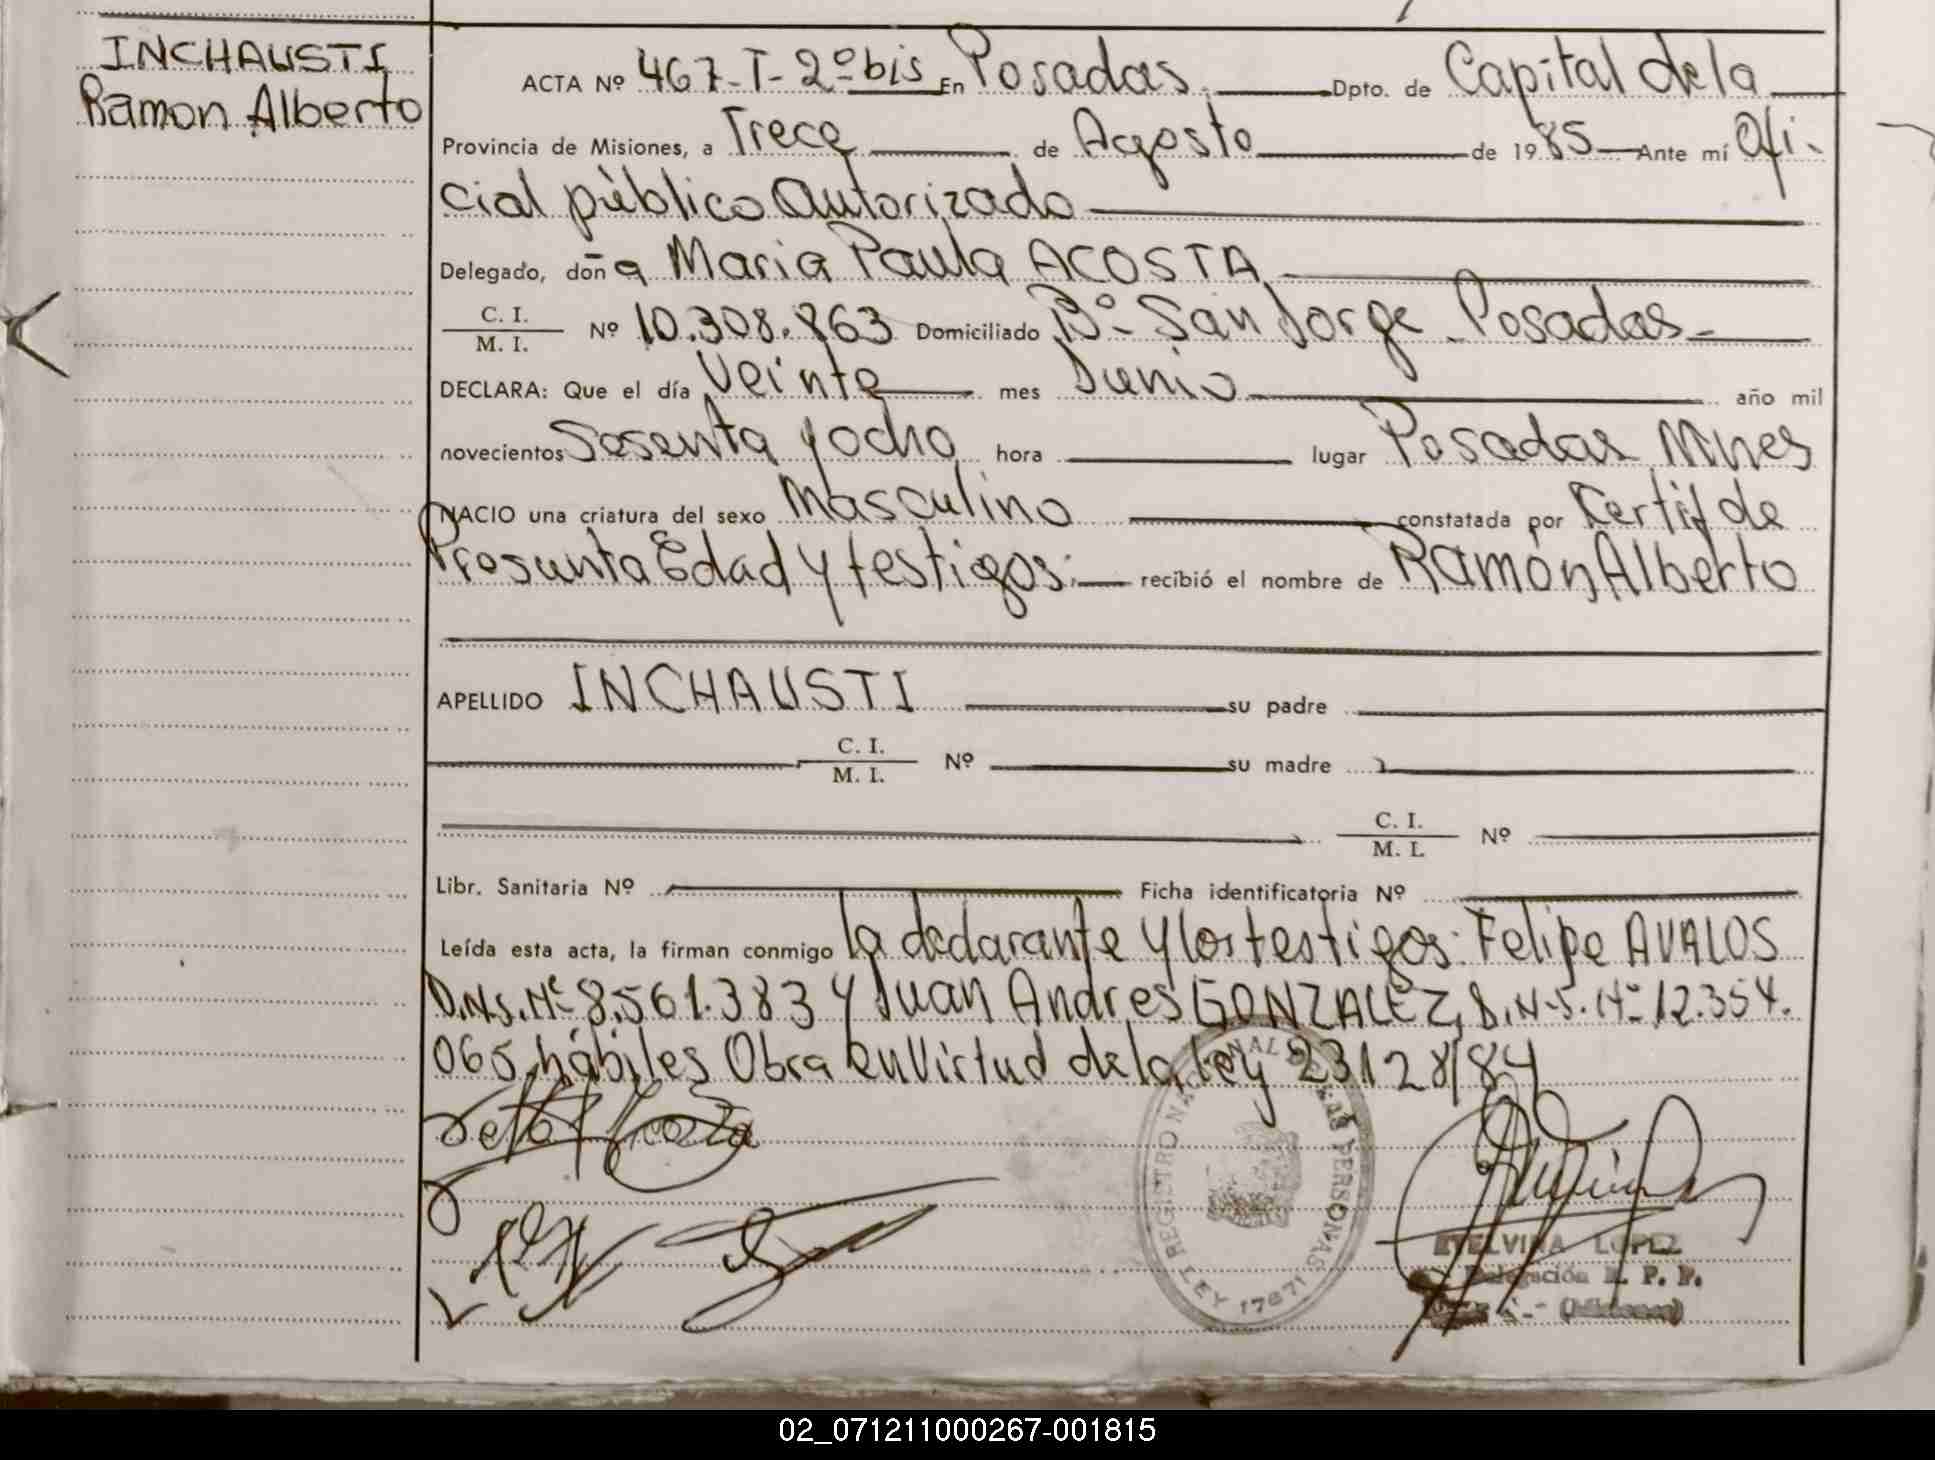 INCHAUSTI
Ramon Alberto
ACTA Nº 467-T-2º bis En Posadas. Dpto. de Capital de la
Provincia de Misiones, a Trece de Agosto de 1985 Ante mí Ofi-
cial público Autorizado
Delegado, doña Maria Paula ACOSTA
C. I.
M. I. Nº 10.308.863 Domiciliado Bº- San Jorge - Posadas-
DECLARA: Que el día Veinte mes Junio año mil
novecientos Sesenta y ocho hora lugar Posadas Mnes
NACIO una criatura del sexo Masculino constatada por Certif de
Presunta Edad y testigos.- recibió el nombre de Ramón Alberto
APELLIDO INCHAUSTI su padre
C. I.
M. I. Nº su madre
C. I.
M. I. Nº
Libr. Sanitaria Nº Ficha identificatoria Nº
Leída esta acta, la firman conmigo la declarante y los testigos: Felipe AVALOS
D.N.I. Nº 8.561.383 y Juan Andres GONZALEZ, D.N.I. Nº 12.354.
065, hábiles Obra en Virtud de la ley 23128/84
REGISTRO NACIONAL DE LAS PERSONAS
LEY 17671
ETELVINA LOPEZ
Delegación R. P. P.
(Misiones)
02_071211000267-001815